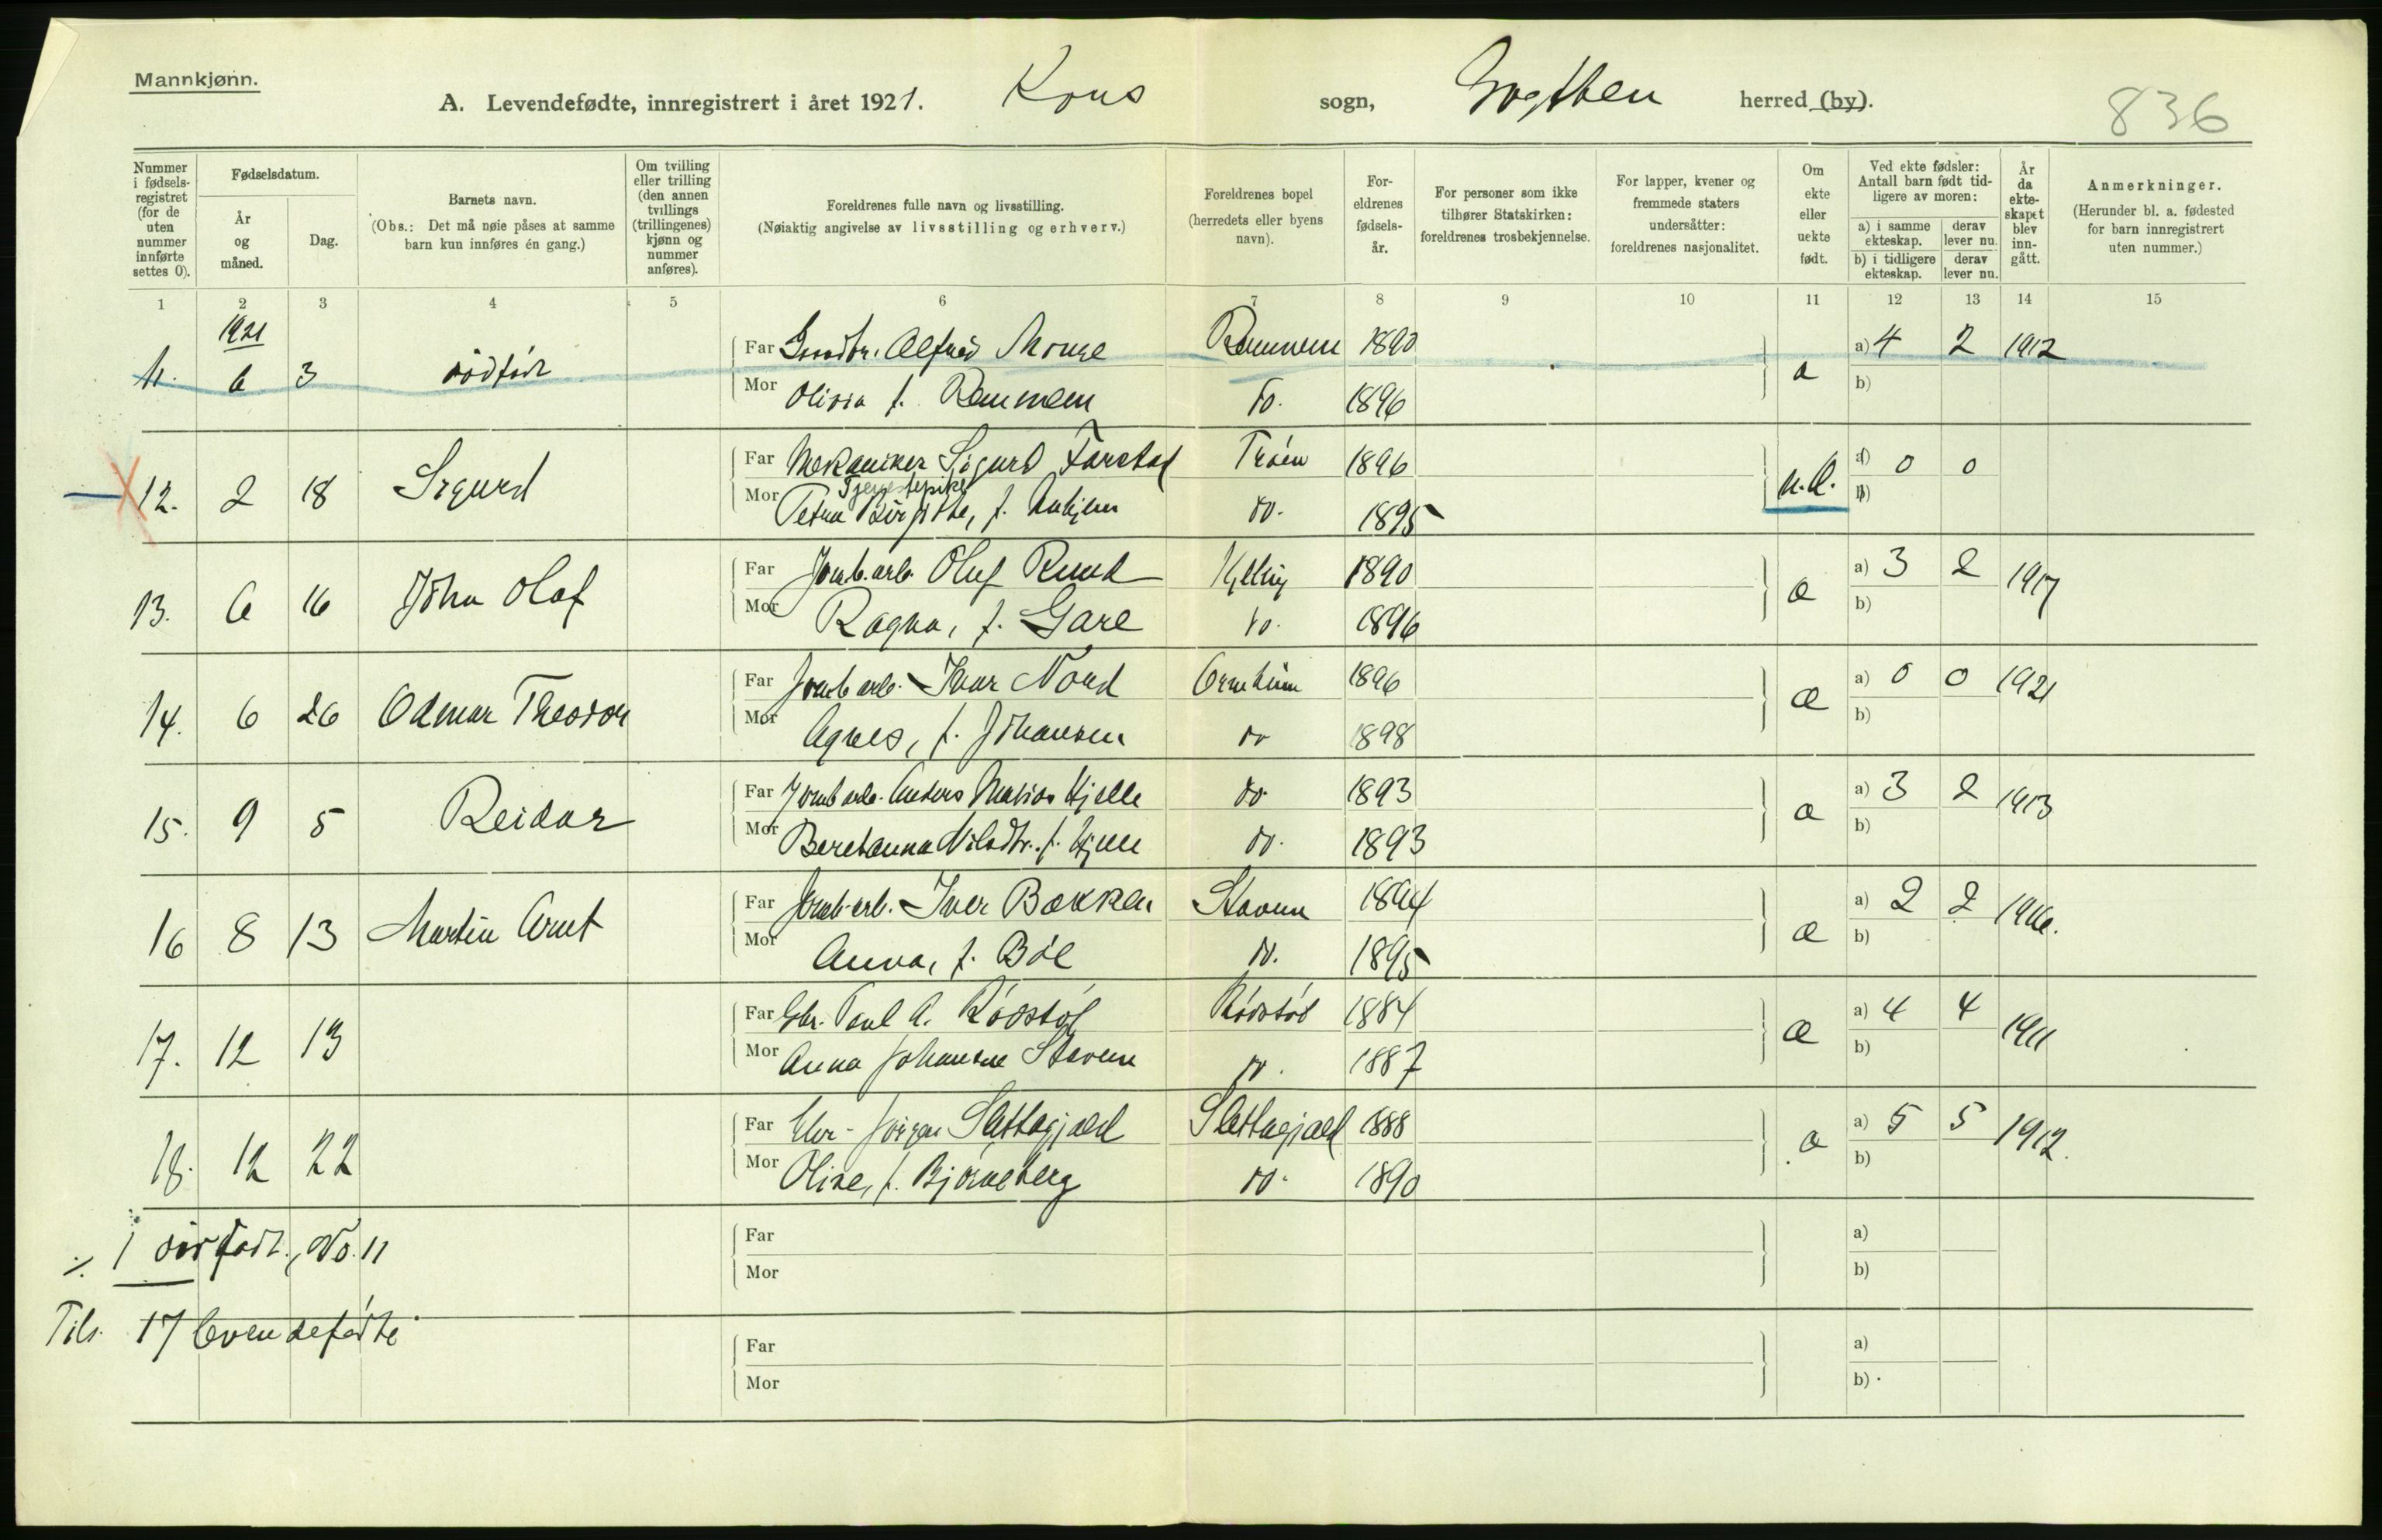 Mannkjønn.
A. Levendefødte, innregistrert i året 1921. Kors sogn, Grytten herred (by).
836
Nummer i fødselsregistret (for de uten nummer innførte settes 0).
Fødselsdatum.
År og måned.
Dag.
Barnets navn.
(Obs.: Det må nøie påses at samme barn kun innføres én gang.)
Om tvilling eller trilling (den annen tvillings (trillingenes) kjønn og nummer anføres).
Foreldrenes fulle navn og livsstilling.
(Nøiaktig angivelse av livsstilling og erhverv.)
Foreldrenes bopel (herredets eller byens navn).
Foreldrenes fødselsår.
For personer som ikke tilhører Statskirken: foreldrenes trosbekjennelse.
For lapper, kvener og fremmede staters undersåtter: foreldrenes nasjonalitet.
Om ekte eller uekte født.
Ved ekte fødsler: Antall barn født tidligere av moren:
a) i samme ekteskap. derav lever nu.
b) i tidligere ekteskap. derav lever nu.
År da ekteskapet blev inngått.
Anmerkninger.
(Herunder bl. a. fødested for barn innregistrert uten nummer.)
1 2 3 4 5 6 7 8 9 10 11 12 13 14 15
1921
11. 6 3 dødfødt Far Alfred Monge Remmem 1890 a) 4 2 1912
Mor Olivia f. Remmem do. 1896 b)
12. 2 18 Sigurd Far Mekaniker Sigurd Farstad Trøen 1896 u.e. a) 0 0
Tjenestepike
Mor Petra Birgithe, f. do. 1895 b)
13. 6 16 John Olaf Far Jernb.arb. Oluf Ruud 1890 a) 3 2 1917
Mor Ragna, f. Gare do. 1896 b)
14. 6 26 Odmar Theodor Far Jernb.arb. Ivar Nord Ormheim 1896 æ a) 0 0 1921
Mor Agnes, f. Johansen do 1898 b)
15. 9 5 Reidar Far Jernb.arb. Anders Marius Hjelle do 1893 a) 3 2 1913
Mor Beretanna Nilsdtr. f. do. 1893 b)
16 8 13 Martin Arnt Far Jernb.arb. Iver Bakken Stavem 1894 æ a) 2 2 1916.
Mor Anna, f. Bøe do. 1895 b)
17. 12 13 Far Gbr. Paul A. Rødstøl Rødstøl 1884 æ a) 4 4 1911
Mor Anna Johanne Stavem do. 1887 b)
18. 12 22 Far Gbr. Jørgen Slettagjæld Slettagjæld 1888 a) 5 5 1912.
Mor Oline, f. Bjørneberg do. 1890 b)
÷ 1 dødfødt, No. 11 Far a)
Mor b)
Tils. 17 levendefødte Far a)
Mor b)